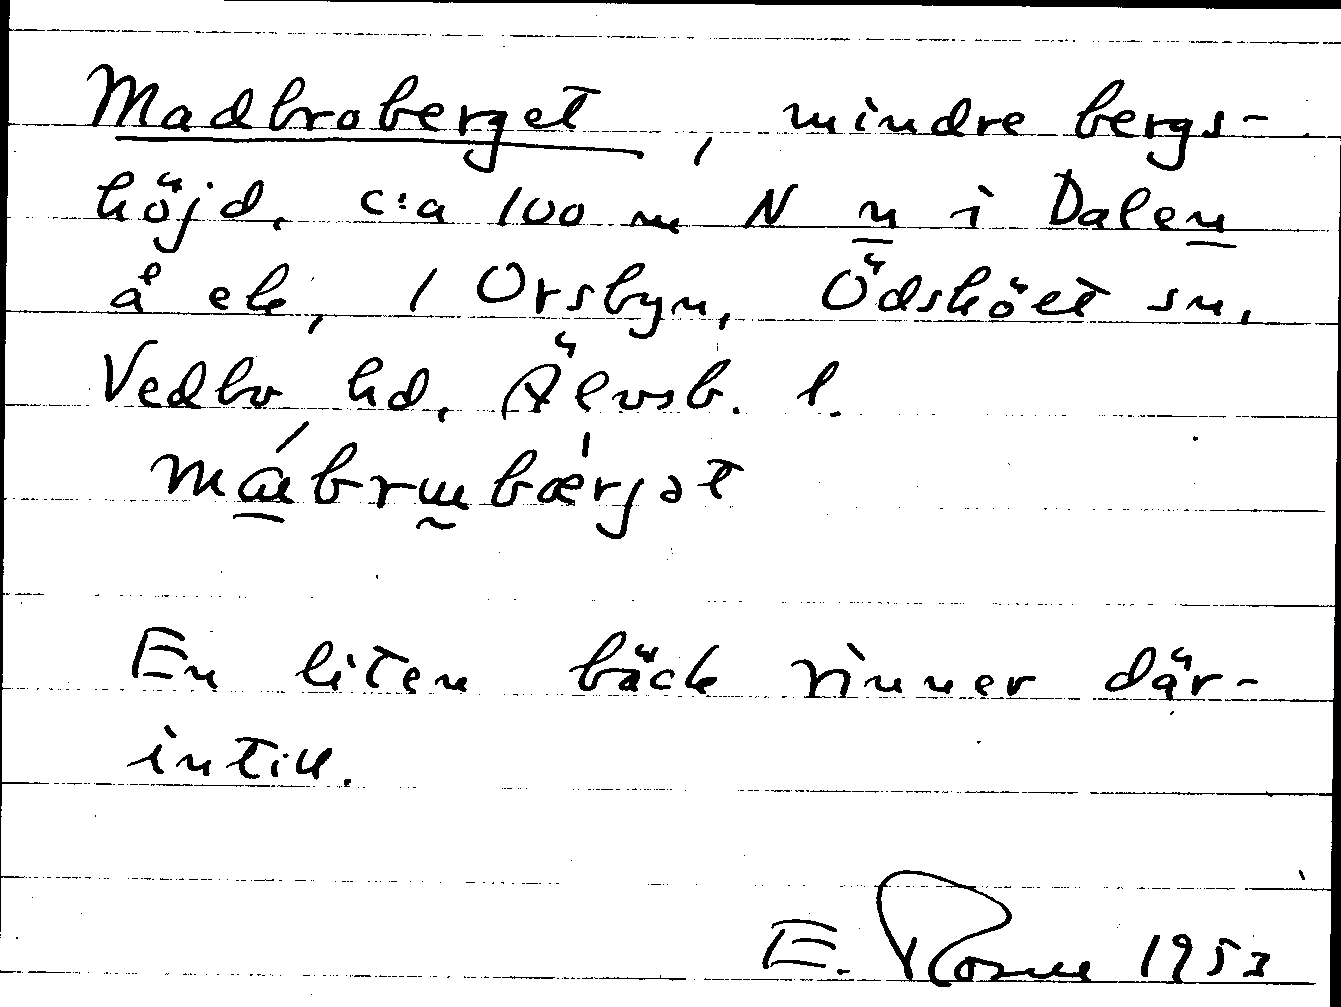 Madbroberget, mindre bergs-
höjd, c:a 100 m N n i Dalen
å ek, 1 Orsbyn, Ödsköet sn,
Vedbo hd, Älvsb. l.
En liten bäck rinner där-
intill.
E. 1953